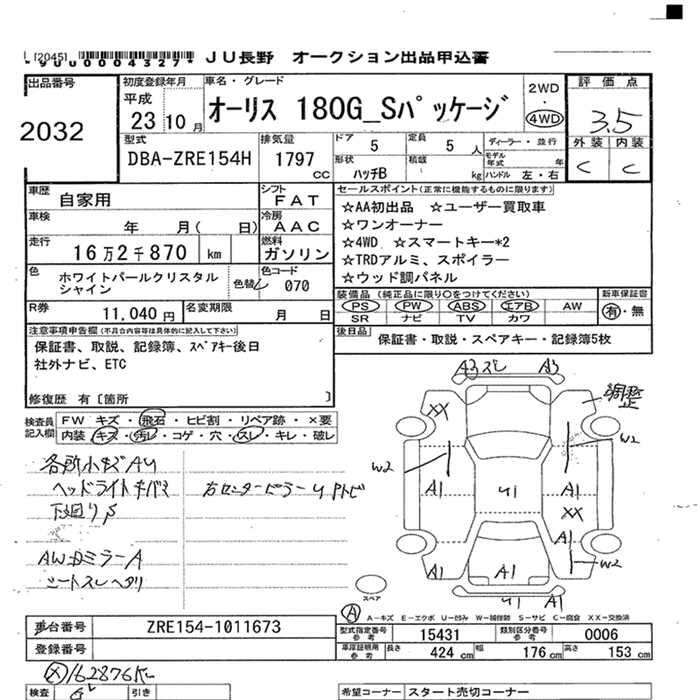 [2045]
*9UU0004327*
JU長野 オークション出品申込書
出品番号
2032
初度登録年月
平成
23 10 月
車名・グレード
オーリス 180G_Sパッケージ
2WD
・
4WD
評価点
3.5
外装 内装
C C
型式
DBA-ZRE154H
排気量
1797
cc
ドア 5
定員 5 人
形状 ハッチB
積載 kg
ディーラー・並行
モデル年式 年
ハンドル 左・右
車歴
自家用
シフト
FAT
車検
年 月( 日)
冷房
AAC
走行
16万2千870 km
燃料
ガソリン
色
ホワイトパールクリスタル
シャイン
色替
色コード
070
R券
11,040 円
名変期限
月 日
セールスポイント(正常に機能するものに限ります)
☆AA初出品 ☆ユーザー買取車
☆ワンオーナー
☆4WD ☆スマートキー*2
☆TRDアルミ、スポイラー
☆ウッド調パネル
装備品 (純正品に限り○をつけてください)
PS PW ABS エアB AW
SR ナビ TV カワ
新車保証書
有・無
後日品
保証書・取説・スペアキー・記録簿5枚
注意事項申告欄(不具合内容等は具体的に記入して下さい)
保証書、取説、記録簿、スペアキー後日
社外ナビ、ETC
修復歴 有[箇所 ]
検査員
記入欄
FW キズ・飛石・ヒビ割・リペア跡・×要
内装 キズ・汚レ・コゲ・穴・スレ・キレ・破レ
各所小キズAU
ヘッドライトキバミ
下廻りS
AWDミラーA
シートスレヘタリ
右センターピラーUPトビ
A3スレ A3
XX
調整
W2
W2
A1
U1
A1
XX
A1
A1
A1
W2
U1
A1
スペア
A A-キズ E-エクボ U-凹み W-補修跡 S-サビ C-腐食 XX-交換済
車台番号
ZRE154-1011673
登録番号
型式指定番号
参考
15431
類別区分番号
参考
0006
車庫証明用
参考
長さ 424 cm
幅 176 cm
高さ 153 cm
162876K
検査
引き
希望コーナー
スタート売切コーナー